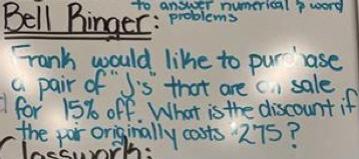 to answer numerical & word
Bell Ringer: problems
Frank would like to purchase
a pair of "J's" that are on sale
for 15% off. What is the discount if
the pair originally costs $275?
Classwork: